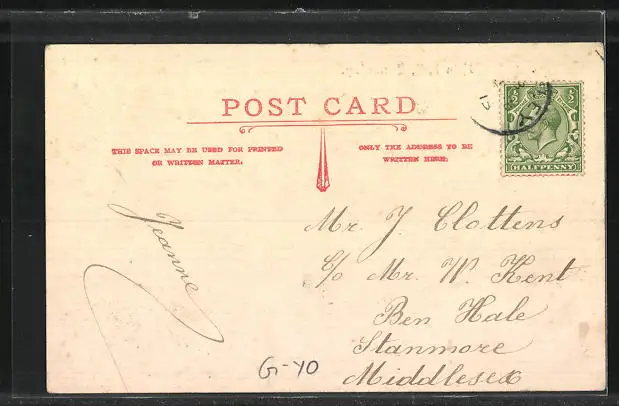 POST CARD
THIS SPACE MAY BE USED FOR PRINTED
OR WRITTEN MATTER.
ONLY THE ADDRESS TO BE
WRITTEN HERE.
½ ½
HALFPENNY
Jeanne
Mr. J. Clottens
c/o Mr. W. Kent
Ben Hale
Stanmore
Middlesex
G-YO